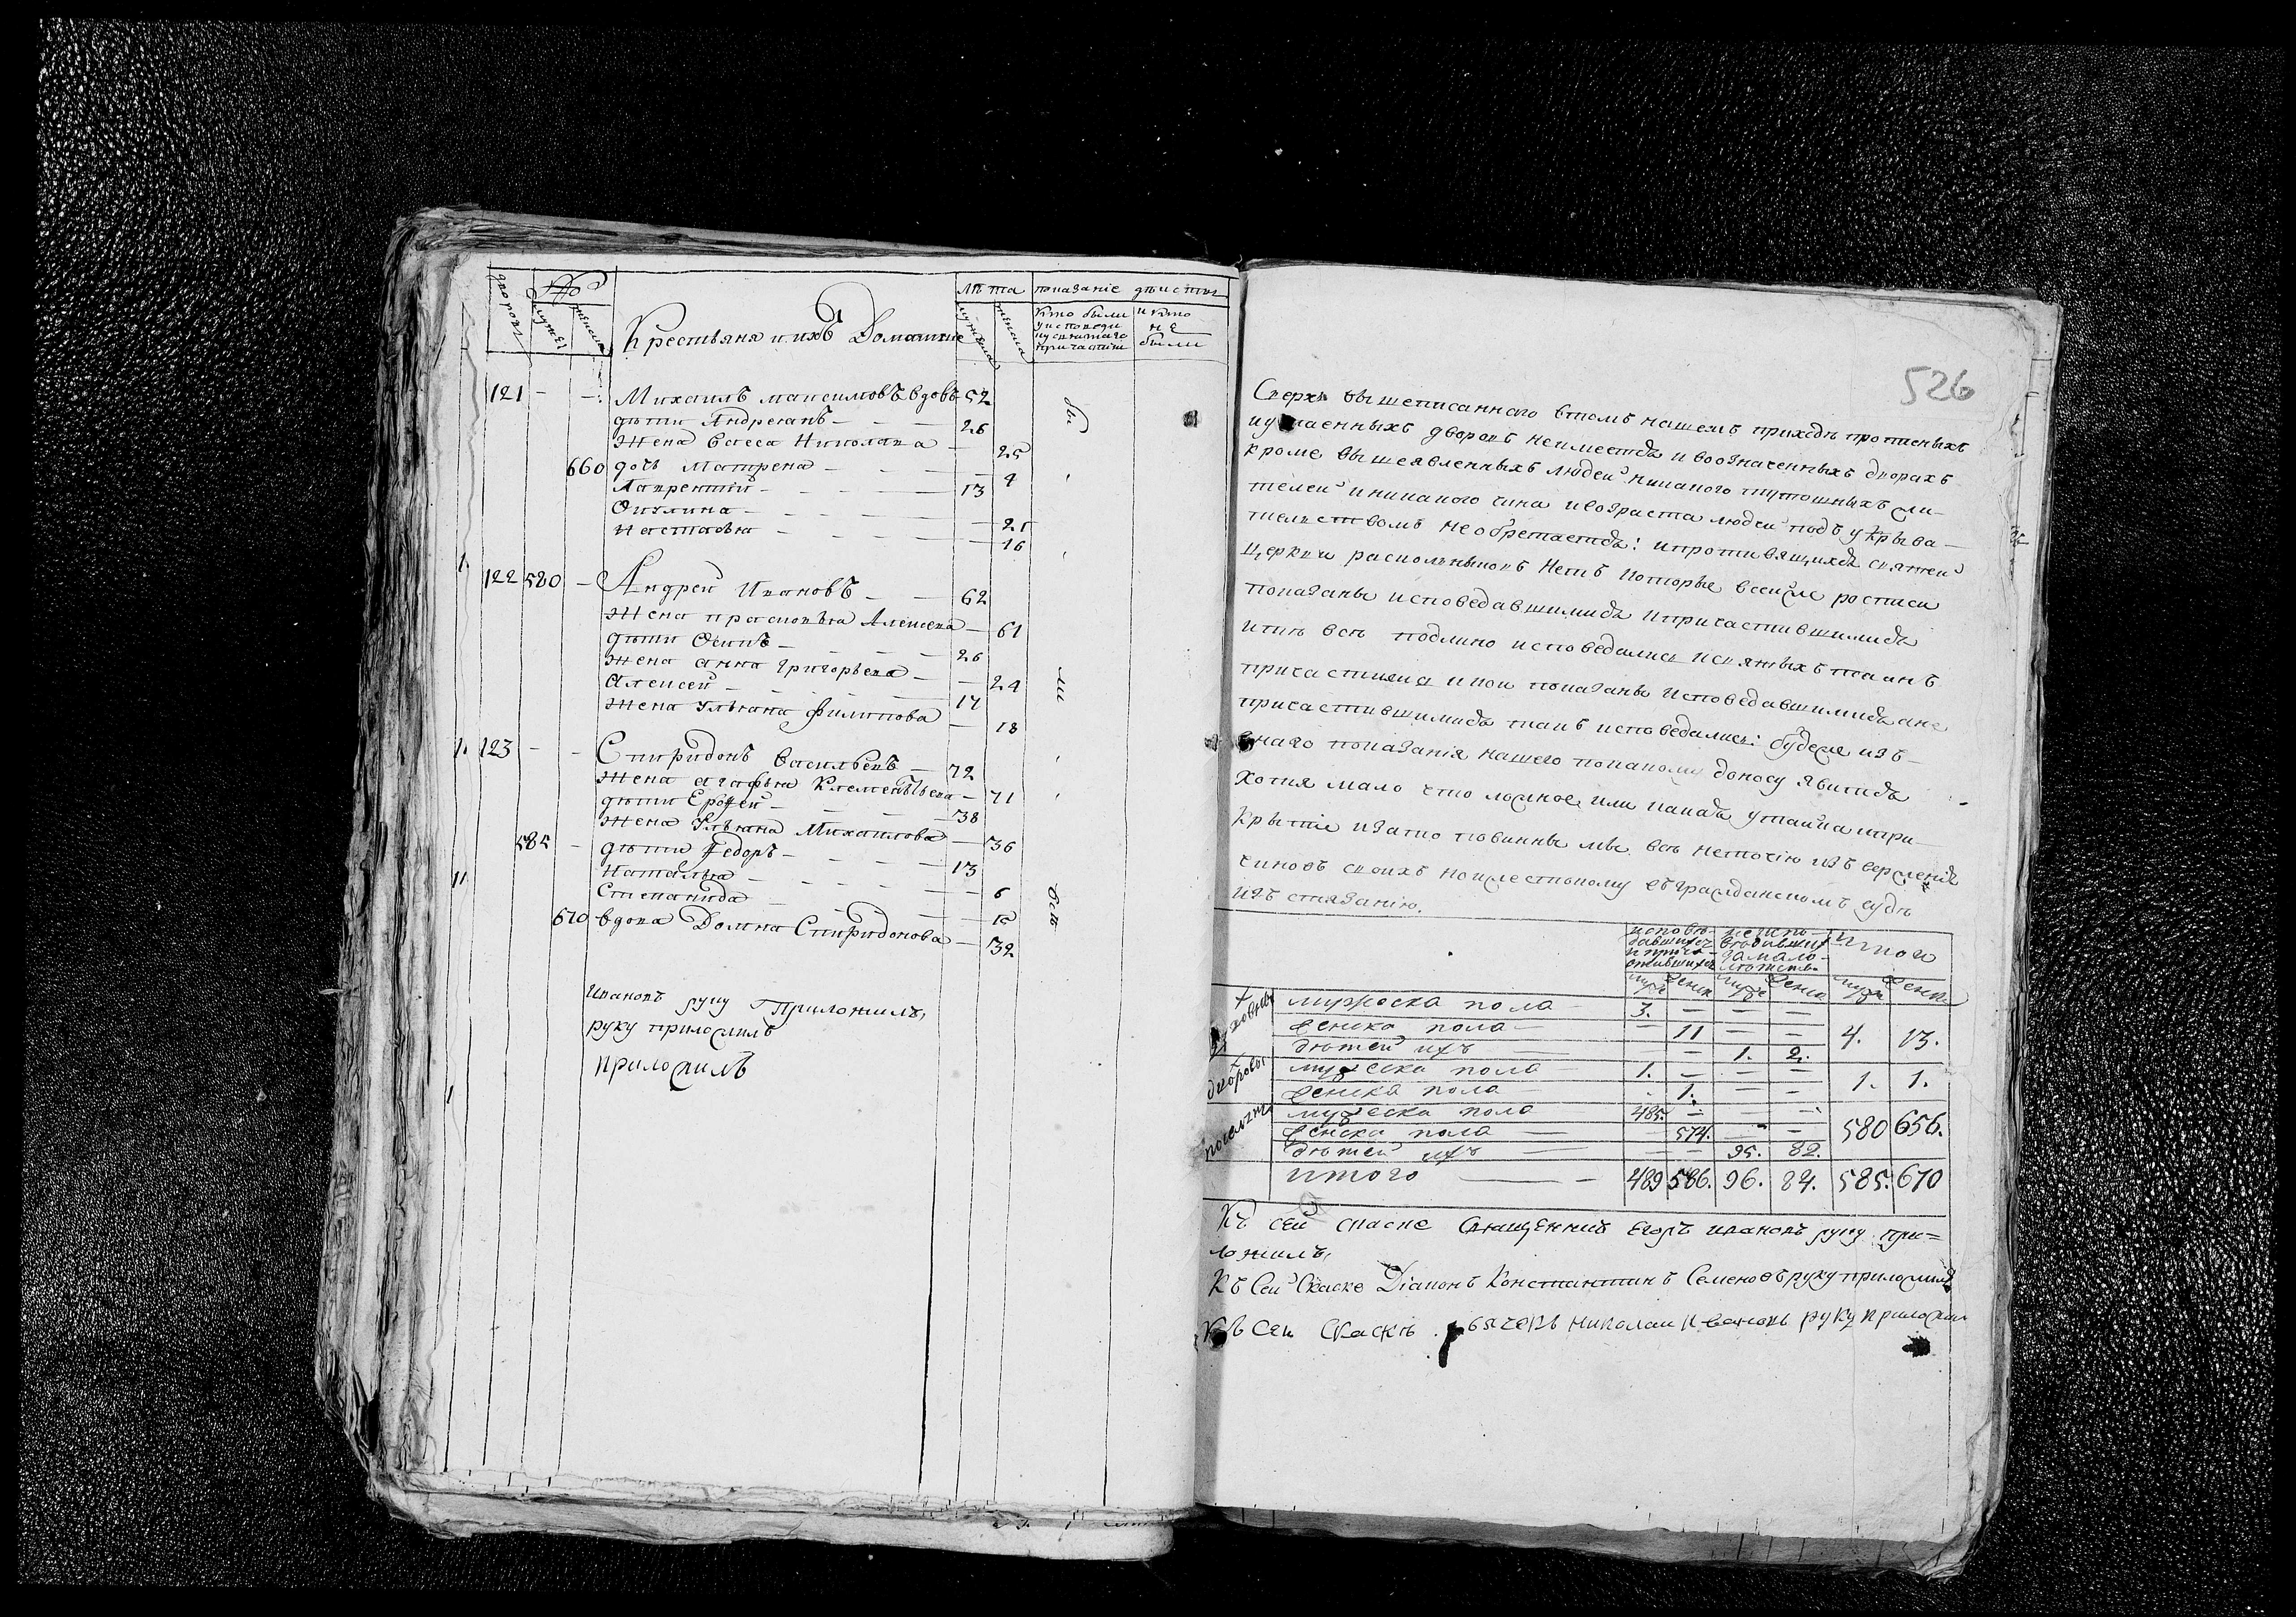 дворовъ
№
мужеска
женска
Крестьяня и ихъ Домашние
Лѣта
мужеска
женска
показаніе дѣиства
Кто были
у исповеди
и у святаго
причастия
и кто
не
были
121 — — Михаилъ максимовъ вдовъ 52
дѣти Андреянъ — 26
Жена Васса Николаева — 25
660 дочь Матрена — 4
Лаврентий — 13
Настасья — 16
122 580 — Андрей Ивановъ — 62
Жена прасковья Алексева — 61
дѣти Осипъ — 26
Жена анна григорьева — 24
Алексей — 17
Жена Ульяна филипова — 18
1. 123 — — Спиридонъ Васильевъ — 72
Жена агафья Клементьева — 71
дѣти Ерофей — 38
Жена Ульяна Михаилова — 36
585 — дѣти Федоръ — 13
Наталья — 6
Степанида —
670 вдова Домна Спиридонова — 32
бы
ли
всѣ
Ивановъ руку Приложилъ,
руку приложилъ
приложилъ
526
Сверхъ вышеписанного втомъ нашемъ приходѣ прописныхъ
иутаенныхъ дворовъ неиместда ивоозначенныхъ дворахъ
кроме вышеявленныхъ людей никакого тутошныхъ жи-
телей иникакого чина ивозраста людей подъ укрыва-
тельствомъ необретаетда: ипротивящихда святей
церкви раскольниковъ Нетъ которые всейже росписи
показаны исповедавшимида ипричастившимида
итѣ всѣ подлино исповедались исвятыхъ таинъ
причастились икои показаны исповедавшимида ане
причастившимида такъ исповедались: будеже изъ
онаго показанія нашего покакому доносу явитда
хотя мало что ложное или какаѧ утайка ипри-
крытіе изато повинны мы всѣ неточію изъ верженія
чиновъ своихъ ножестокому въгражданскомъ судѣ
изъ стязанію.
исповѣ-
давшихсѧ
и прича-
стившихсѧ
неиспо-
вѣдавших
замало-
лѣтсвѣ
Итого
муж женск муж женск муж женск
духовны
мужеска пола — 3. — — —
женска пола — — 11 — — 4. 13.
дѣтей ихъ — — — 1. 2.
дворовы
мужеска пола — 1. — — —
женска пола . 1. — — 1. 1.
поселяня
мужеска пола 485. — — —
женска пола — — 574. — — 580 656.
дѣтей ихъ — — — 95. 82.
итого — — 489 586. 96. 84. 585. 670
Къ сей скаске священникъ Егоръ ивановъ руку при=
ложилъ,
Къ Сей Скаске Діаконъ Константинъ Семеновъ руку приложилъ
Къ Сеи Скаскѣ дьячекъ николаи ивановъ руку приложил